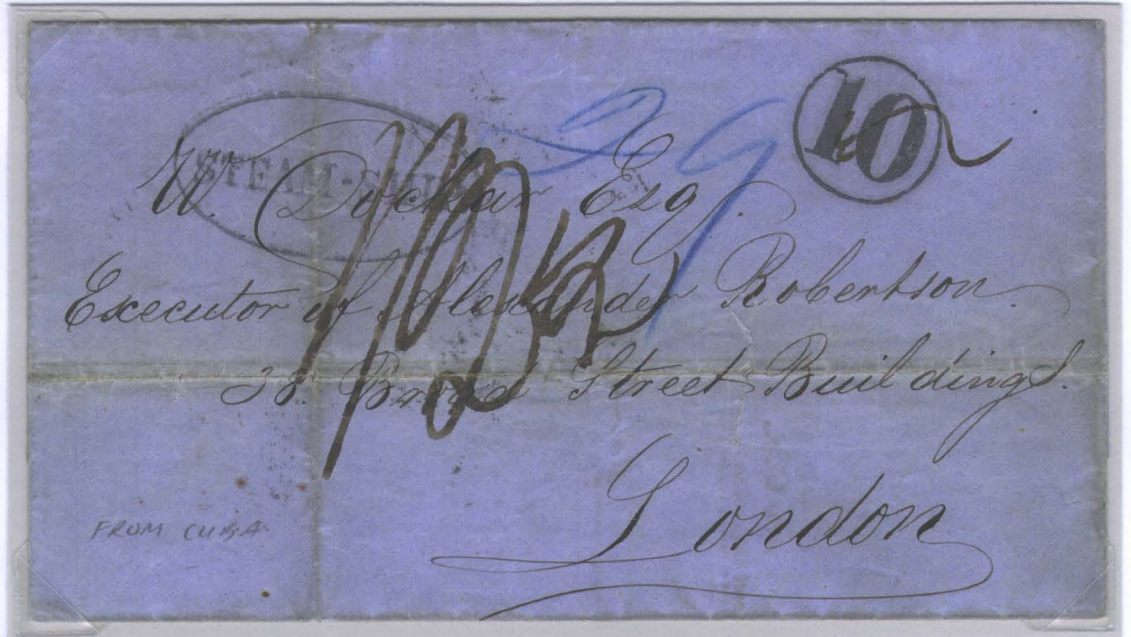 STEAM-SHIP
10
W. Dockar Esq.
Executor of Alexander Robertson
38. Broad Street Buildings.
London
FROM CUBA